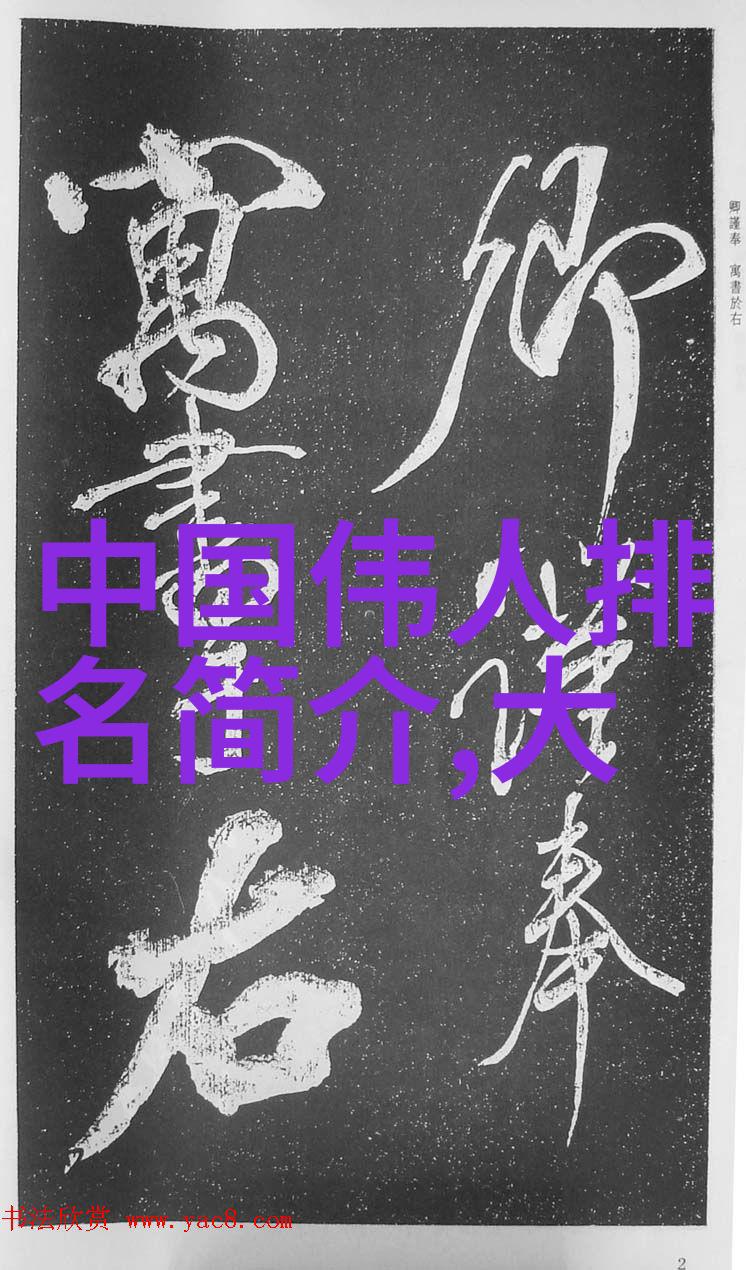 卿謹奉
寓書右
卿謹奉 寓書於右
中国伟人排
名简介,大
书法欣赏 www.yac8.com
2